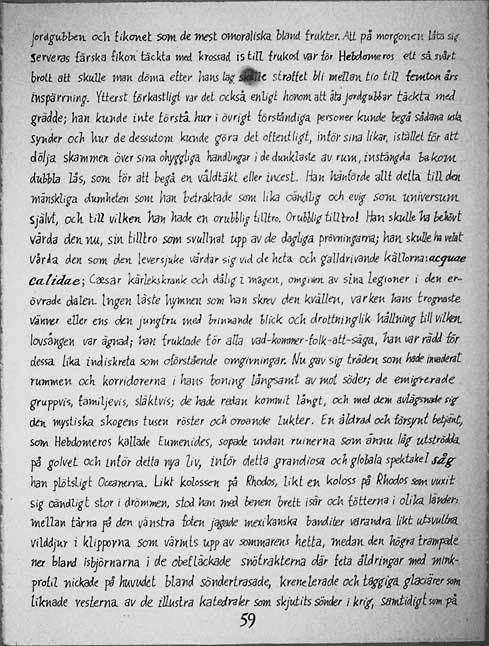 jordgubben och fikonet som de mest omoraliska bland frukter. Att på morgonen låta sig
serveras färska fikon täckta med krossad is till frukost var för Hebdomeros ett så svårt
brott att skulle man döma efter hans lag skulle straffet bli mellan tio till femton års
inspärrning. Ytterst förkastligt var det också enligt honom att äta jordgubbar täckta med
grädde; han kunde inte förstå hur i övrigt förståndiga personer kunde begå sådana usla
synder och hur de dessutom kunde göra det offentligt, inför sina likar, istället för att
dölja skammen över sina ohyggliga handlingar i de dunklaste av rum, instängda bakom
dubbla lås, som för att begå en våldtäkt eller incest. Han hänförde allt detta till den
mänskliga dumheten som han betraktade som lika oändlig och evig som universum
självt, och till vilken han hade en orubblig tilltro. Orubblig tilltro! Han skulle ha behövt
vårda den nu, sin tilltro som svullnat upp av de dagliga prövningarna; han skulle ha velat
vårda den som den leversjuke vårdar sig vid de heta och galldrivande källorna: acquae
calidae; Cæsar kärlekskrank och dålig i magen, omgiven av sina legioner i den er-
övrade dalen. Ingen läste hymnen som han skrev den kvällen, varken hans trognaste
vänner eller ens den jungfru med brinnande blick och drottninglik hållning till vilken
lovsången var ägnad; han fruktade för alla vad-kommer-folk-att-säga, han var rädd för
dessa lika indiskreta som oförstående omgivningar. Nu gav sig träden som hade invaderat
rummen och korridorerna i hans boning långsamt av mot söder; de emigrerade
gruppvis, familjevis, släktvis; de hade redan kommit långt, och med dem avlägsnade sig
den mystiska skogens tusen röster och oroande lukter. En åldrad och försynt betjänt,
som Hebdomeros kallade Eumenides, sopade undan ruinerna som ännu låg utströdda
på golvet och inför detta nya liv, inför detta grandiosa och globala spektakel såg
han plötsligt Oceanerna. Likt kolossen på Rhodos, likt en koloss på Rhodos som vuxit
sig oändligt stor i drömmen, stod han med benen brett isär och fötterna i olika länder:
mellan tårna på den vänstra foten jagade mexikanska banditer varandra likt utsvultna
vilddjur i klipporna som värmts upp av sommarens hetta, medan den högra trampade
ner bland isbjörnarna i de obefläckade snötrakterna där feta åldringar med mink-
profil nickade på huvudet bland söndertrasade, krenelerade och taggiga glaciärer som
liknade resterna av de illustra katedraler som skjutits sönder i krig, samtidigt som på
59